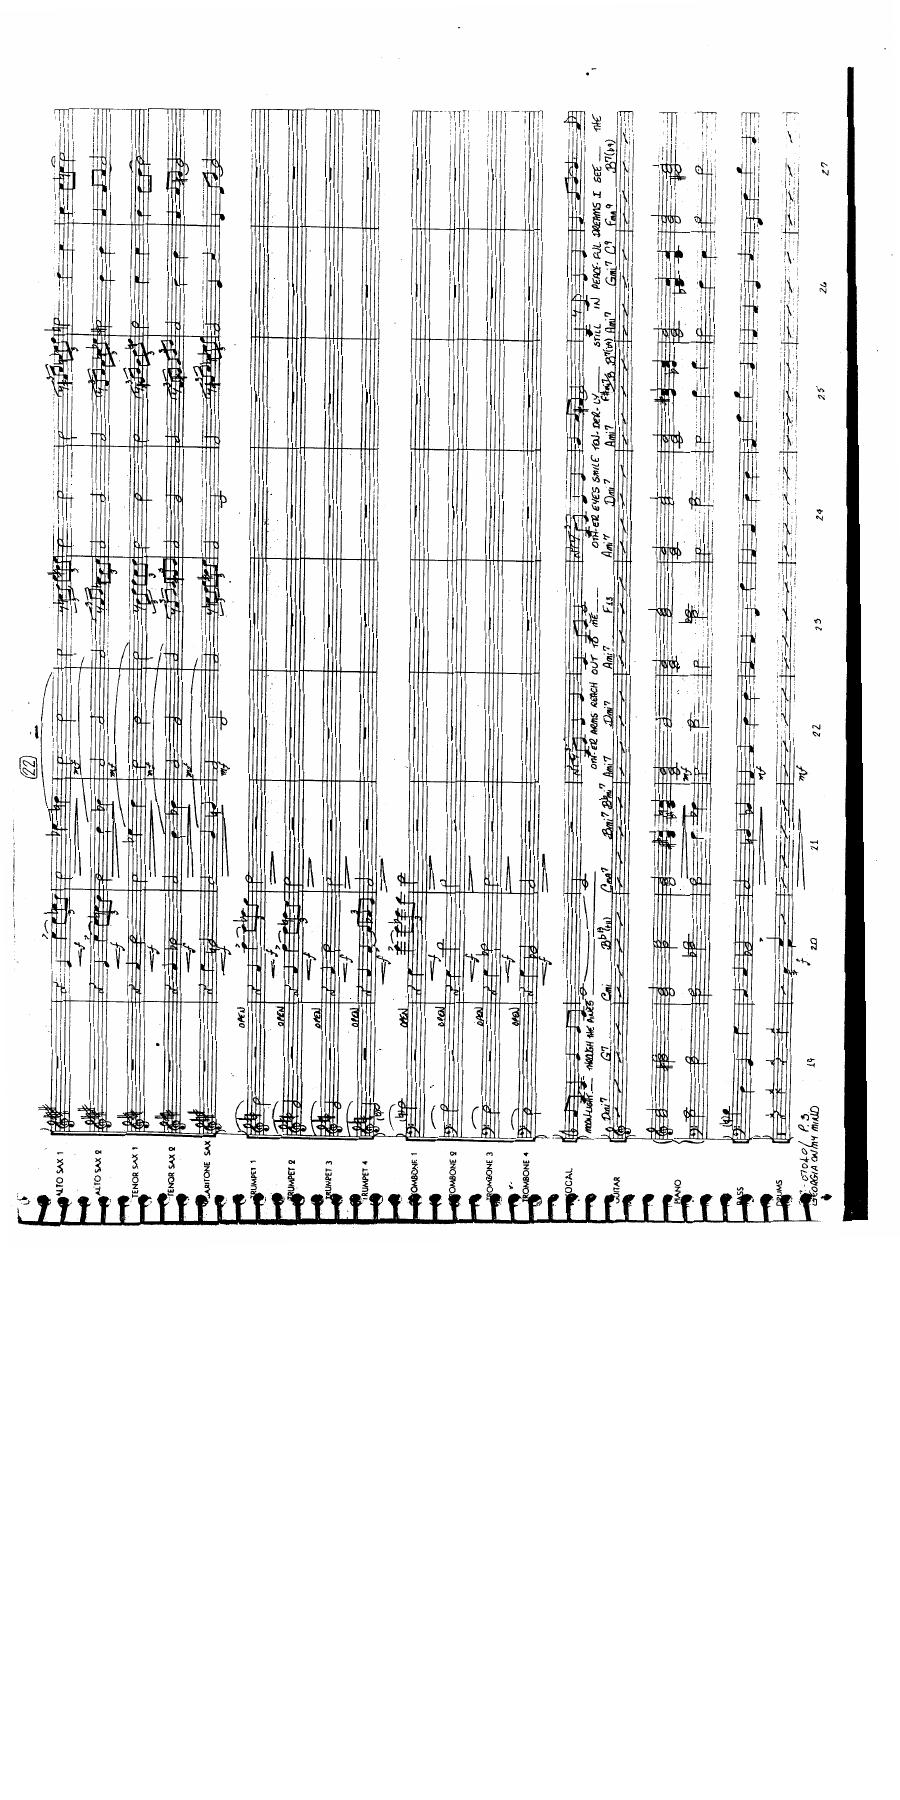 22
ALTO SAX 1
ALTO SAX 2
TENOR SAX 1
TENOR SAX 2
BARITONE SAX
mf mf mf mf mf
f f f f f
TRUMPET 1 OPEN
TRUMPET 2 OPEN
TRUMPET 3 OPEN
TRUMPET 4 OPEN
f f f f
TROMBONE 1 OPEN
TROMBONE 2 OPEN
TROMBONE 3 OPEN
TROMBONE 4 OPEN
f f f f
VOCAL
MOONLIGHT THROUGH THE PINES OTH-ER ARMS REACH OUT TO ME OTH-ER EYES SMILE TEN-DER-LY STILL IN PEACE-FUL DREAMS I SEE THE
GUITAR
Dmi7 G7 Cmi Cma7 Bmi7 Ami7 Dmi7 Ami7 Ami7 Dmi7 Ami7 B7(b9) Ami7 Gmi7 C9 Fma9 B7(b9)
PIANO mf
BASS mf
DRUMS f mf
19 20 21 22 23 24 25 26 27
P. 3
GEORGIA ON MY MIND